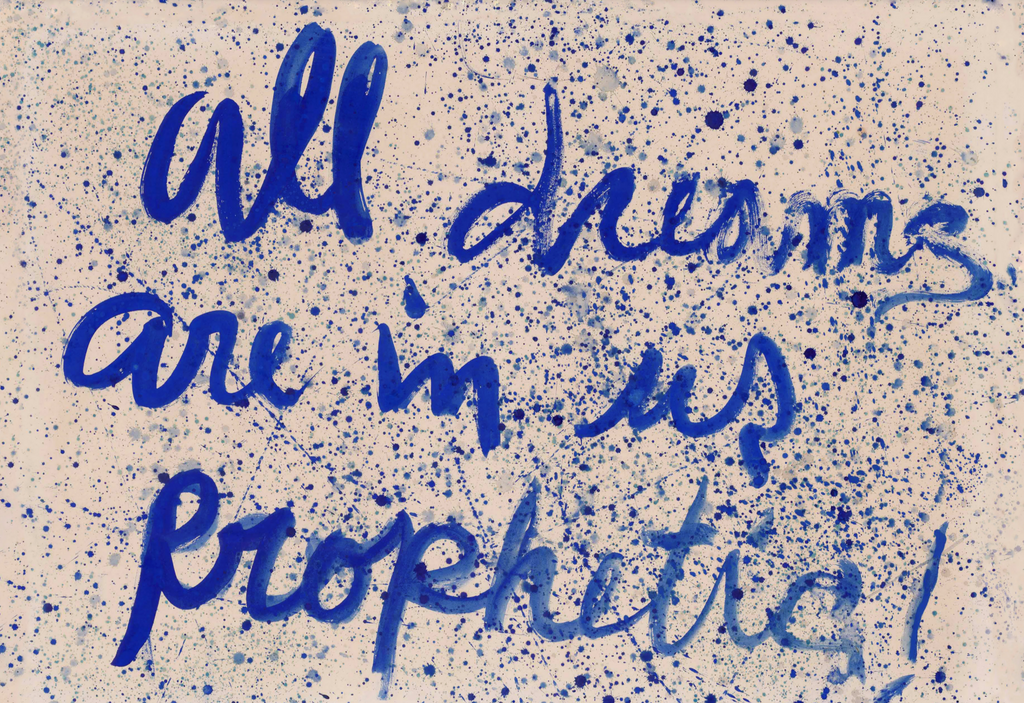 all dreams
are in us
prophetic!